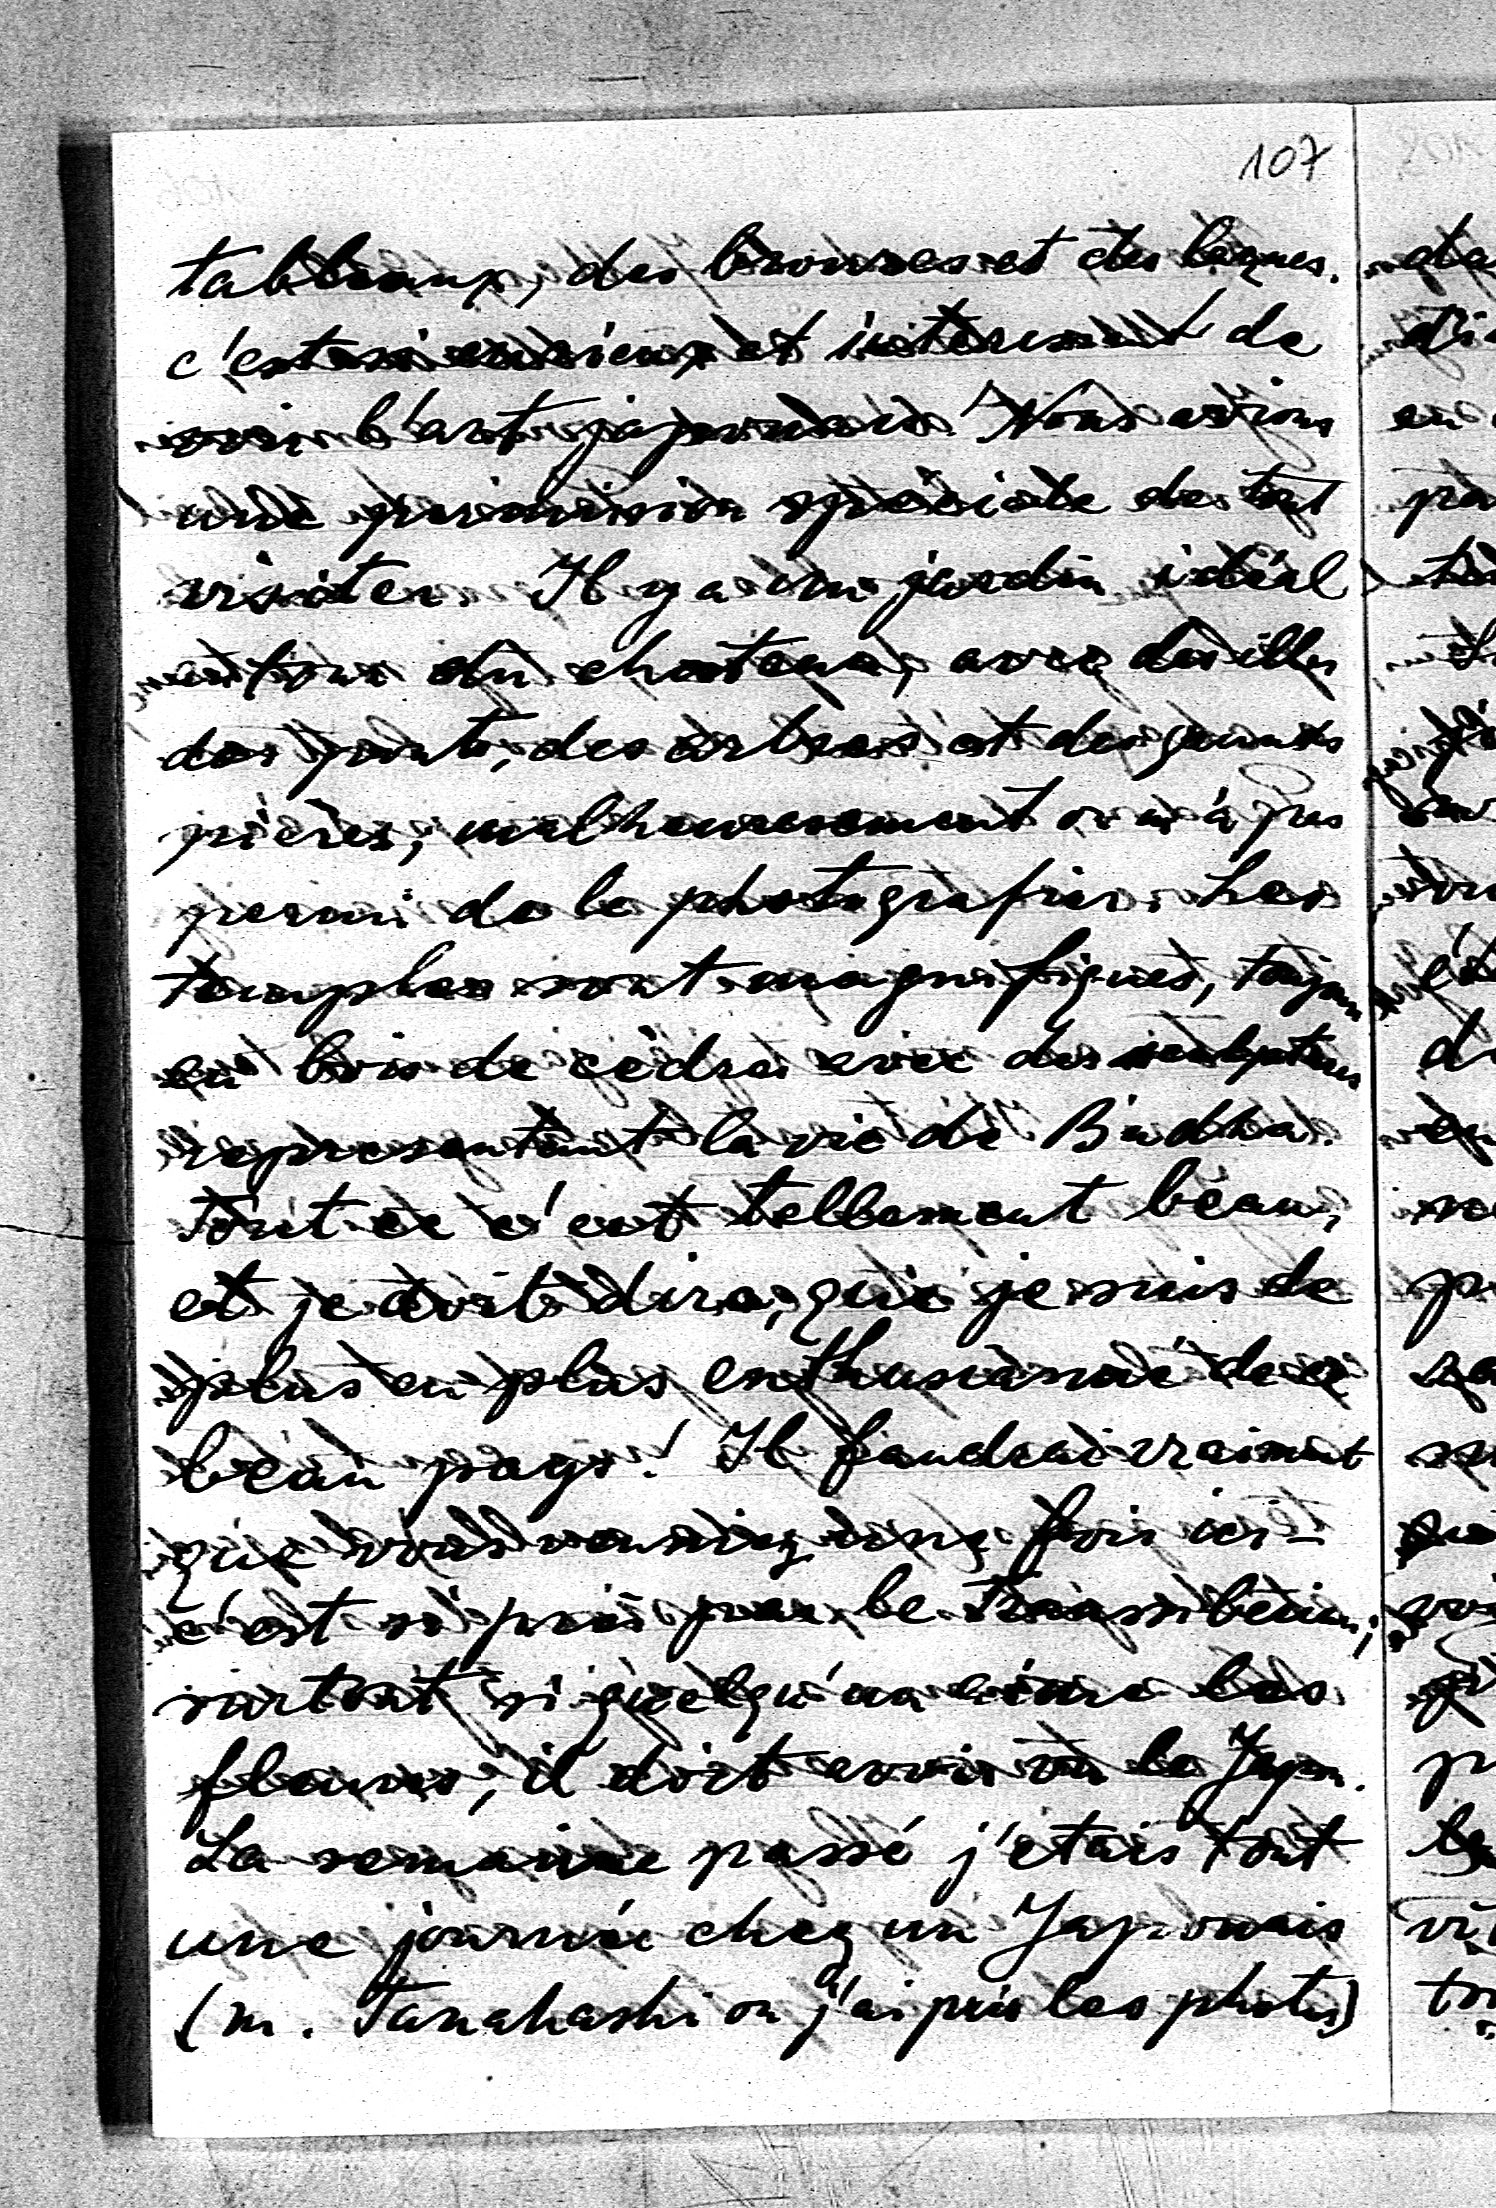 107
tableaux, des bronzes et des laques.
c'est si curieux et interessant de
voir l'art japonais. Nous avions
une permission speciale de tout
visiter. Il y a un jardin idéal
autour du chateau, avec des illes
des ponts, des arbres et des grandes
pierès, malheureusement on n'a pas
permi de le photografier. Les
temples sont magnifiques, toujours
en bois de cèdre avec des sculptures
representant la vie de Budha.
Tout ce c'est tellement beau,
et je doit dire, que je suis de
plus en plus enthusiasmé de ce
beau pays! Il faudrai vraiment
que vous veniez une fois ici -
c'est si près par le Transsiberien,
surtout si quelqu'un aime les
fleures, il doit avoir vu le Japon.
La semaine passé j'etais tout
une journée chez un Japonais
(M. Tanahashi ou j'ai pris les photos)